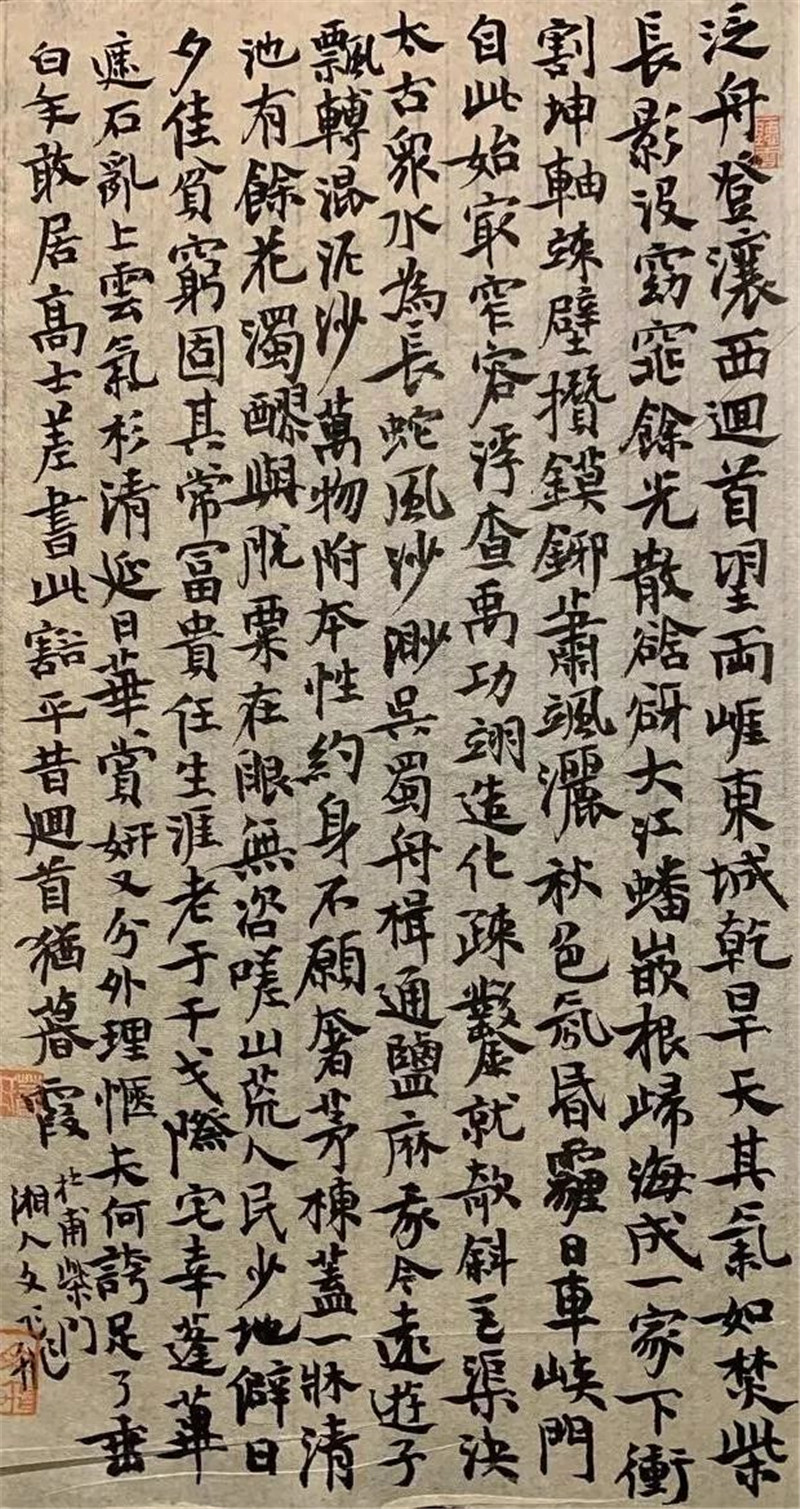 泛舟登瀼西迴首望兩崖東城乾旱天其氣如焚柴
長影沒窈窕餘光散谽谺大江蟠嵌根歸海成一家下衝
割坤軸竦壁攢鏌鋣蕭颯灑秋色氛昏霾日車峽門
自此始最窄容浮查禹功翊造化疎鑿就欹斜巨渠決
太古衆水為長蛇風沙渺吳蜀舟楫通鹽麻我今遠遊子
飄轉混泥沙萬物附本性約身不願奢茅棟蓋一牀清
池有餘花濁醪與脫粟在眼無咨嗟山荒人民少地僻日
夕佳貧窮固其常富貴任生涯老于干戈際宅幸蓬蓽
遮石亂上雲氣杉清延日華賞妍又分外理愜夫何誇足了垂
白年敢居高士差書此豁平昔迴首猶暮霞
杜甫柴門
湘人文